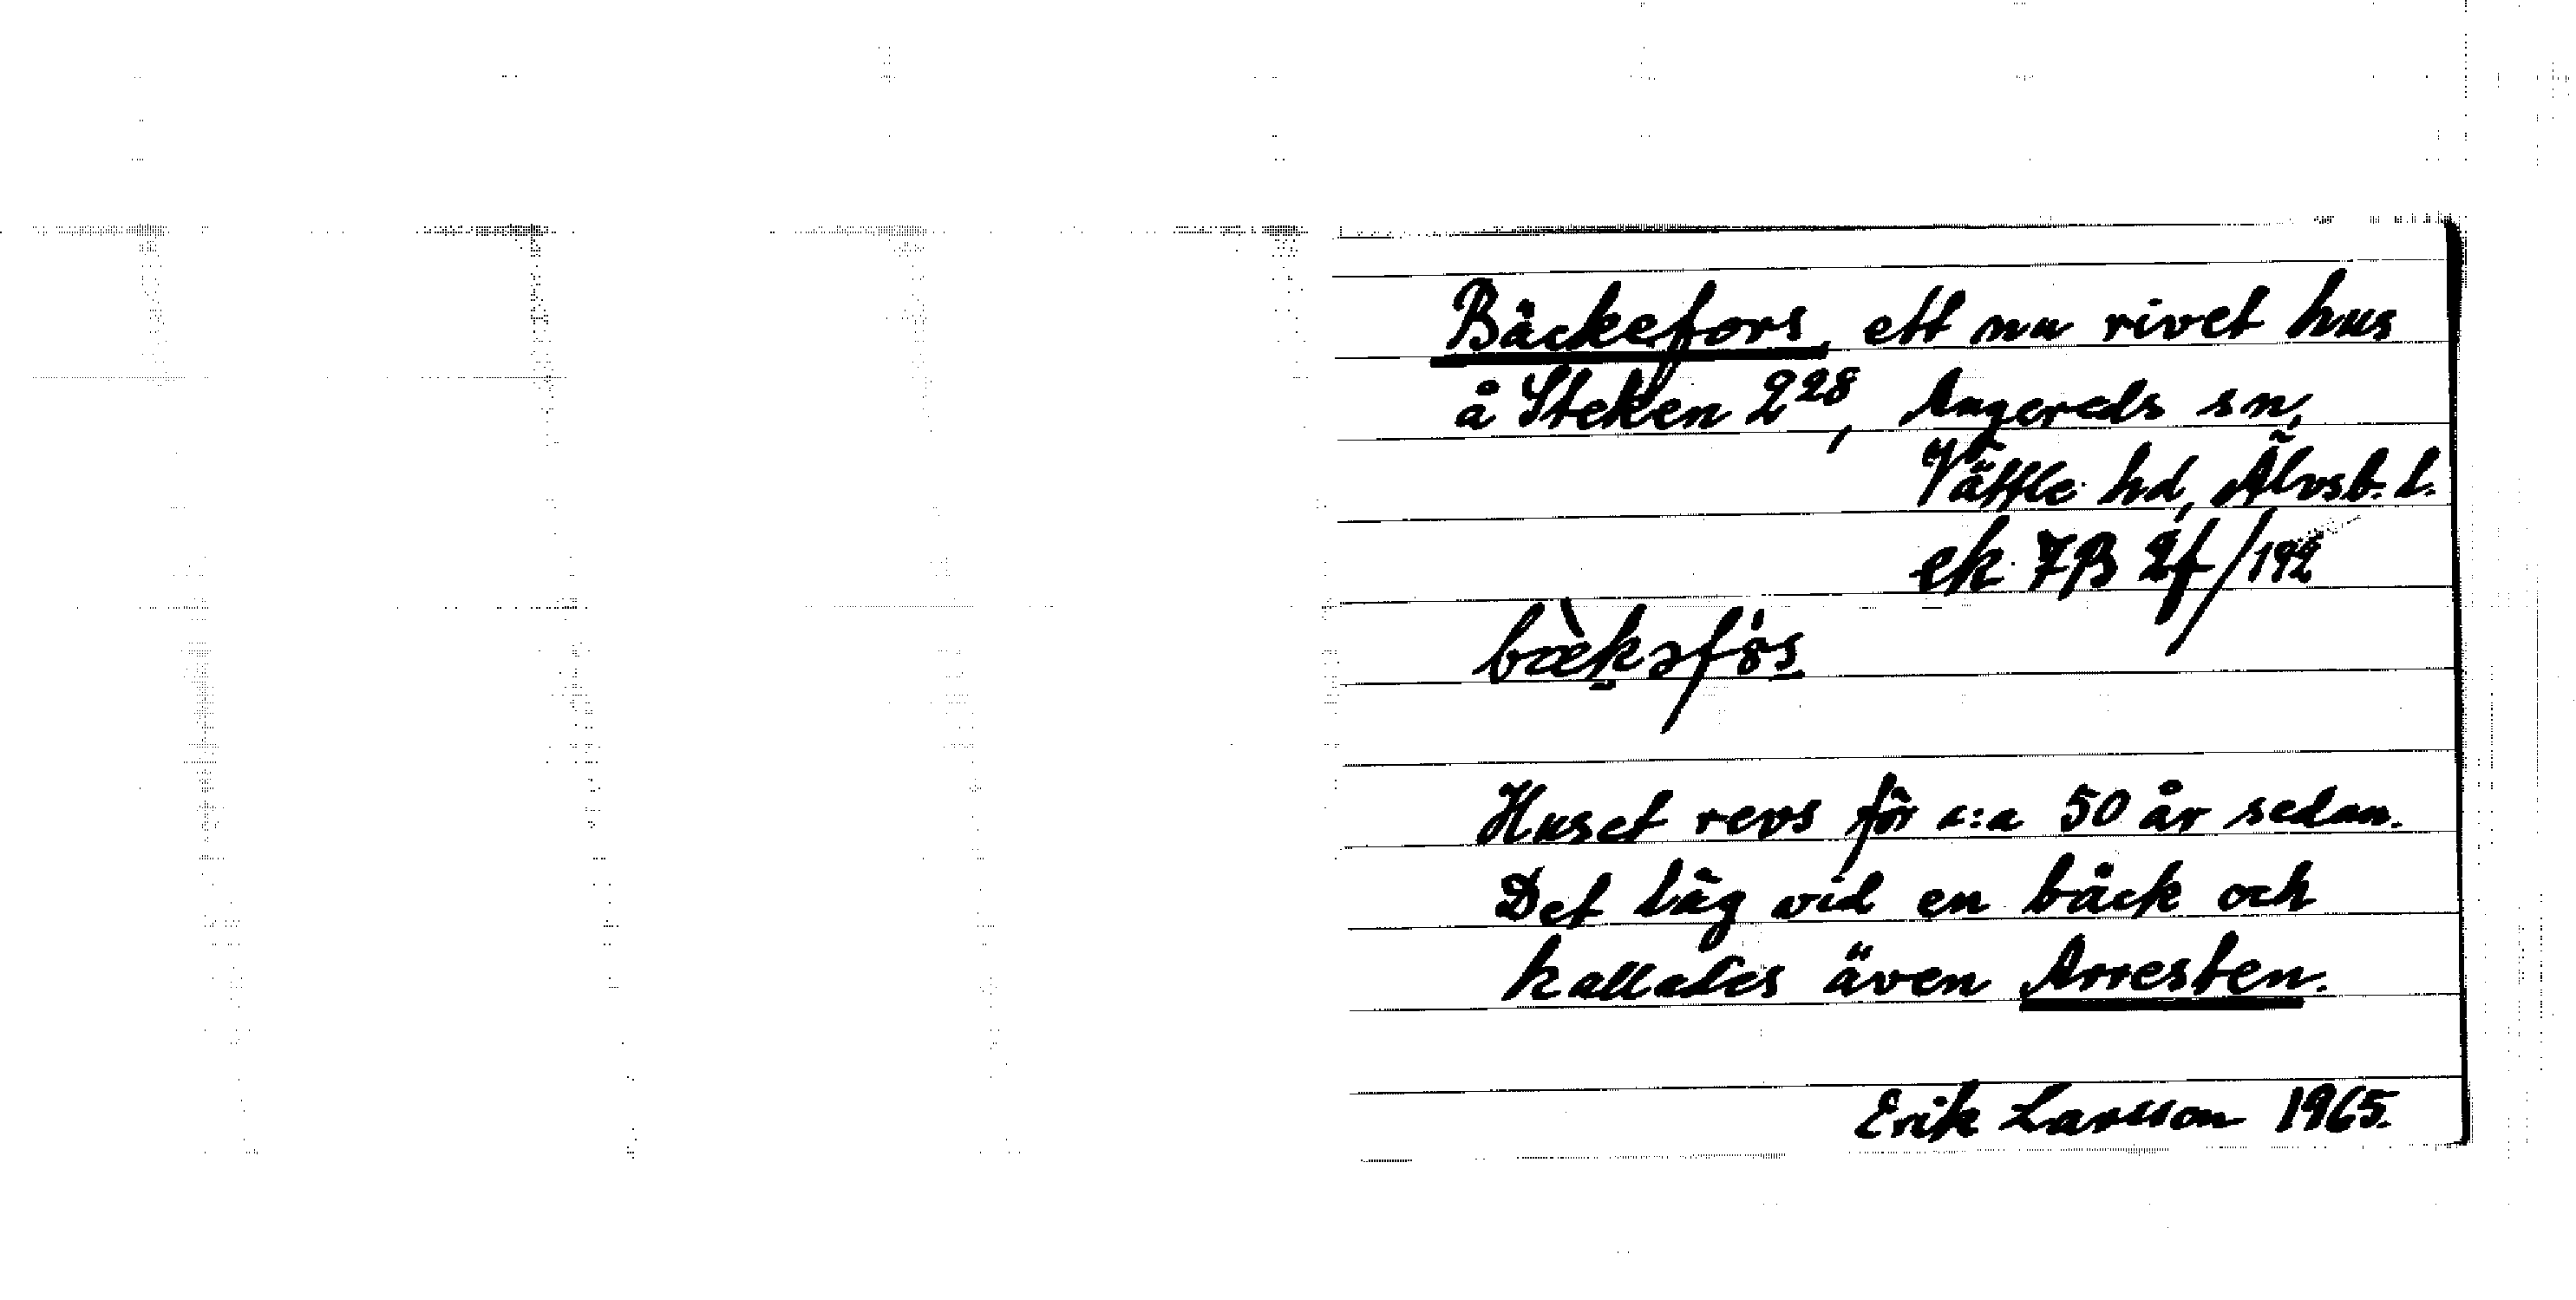 Bäckefors, ett nu rivet hus
å Steken 2²⁸, Angereds sn,
Vättle hd, Älvsb. l.
ek 7B 2f/192
bæ̀kəfòs
Huset revs för c:a 50 år sedan.
Det låg vid en bäck och
kallades även Arresten.
Erik Larsson 1965.